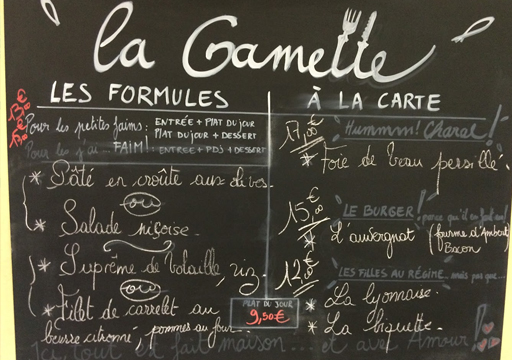 la Gamelle
LES FORMULES
Pour les petites faims : ENTRÉE + PLAT DU JOUR
PLAT DU JOUR + DESSERT
FAIM! : ENTRÉE + PDJ + DESSERT
* Pâté en croûte aux olives.
ou
* Salade niçoise.
* Suprême de Volaille, riz.
ou
* Filet de carrelet au
beurre citronné, pommes au four.
PLAT DU JOUR
9,50€
À LA CARTE
17,00€
Hummm! Charal!
* Foie de Veau persillé.
15,00€
LE BURGER! parce qu'il en faut un!
* L'auvergnat (fourme d'Ambert
Bacon
12€
LES FILLES AU RÉGIME... mais pas que...
* La lyonnaise.
* La biquette.
Ici, tout est fait maison... et avec Amour!